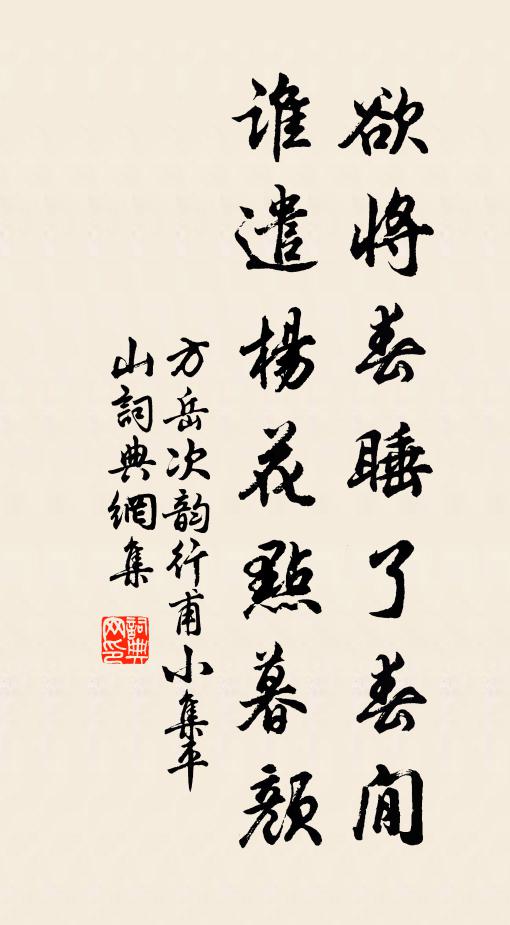 欲將春睡了春閒
誰遣楊花點暮顏
方岳次韵行甫小集平
山詞典網集
詞典网印